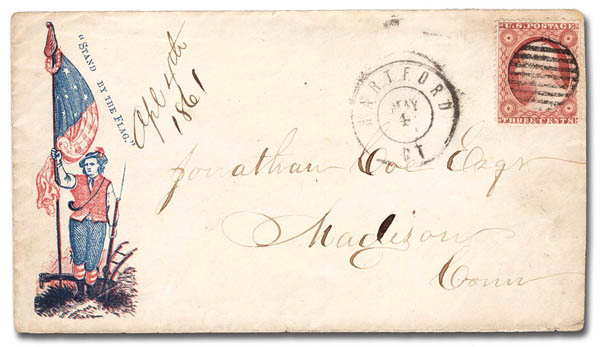 "STAND BY THE FLAG."
Apl 4th
1861
HARTFORD
MAY
4
CT
U.S. POSTAGE
THREE CENTS
Jonathan Coe Esqr
Madison
Conn